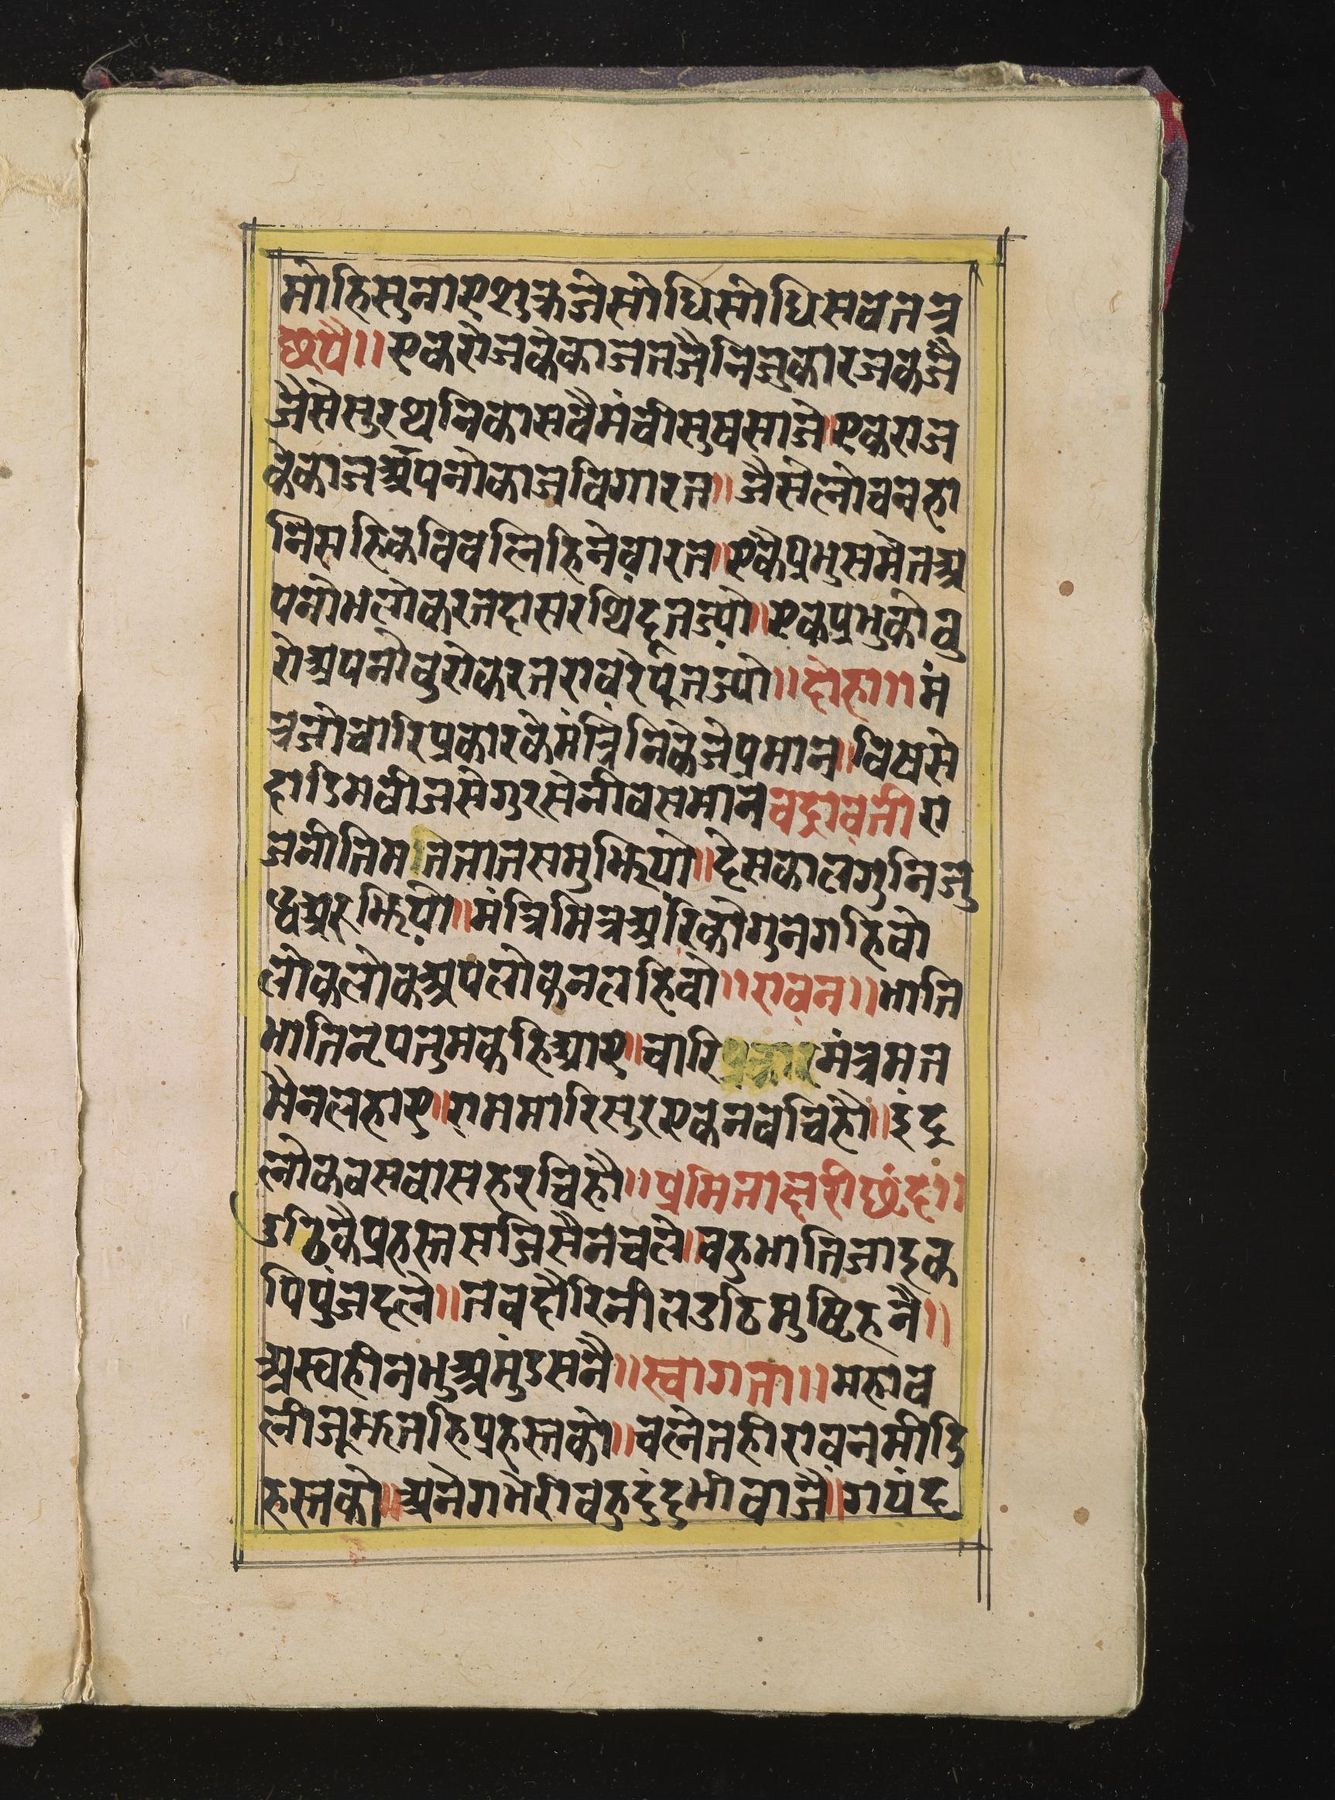 मोहि सुनाए शुक्र जे सोधि सोधि सब तन्त्र
छपै ॥ एक राज के काज तजै निजु कारज काजै
जैसे सुरथ निकासवै मंत्री सुष साजे ॥ एक राज
के काज अपनो काज बिगारत ॥ जैसे लोचन हा
नि सहि कवि बलिहि नेवारत ॥ एकै प्रभु समेत अ
पनो भलो करत दासरथि दूत ज्यो ॥ एक प्रभु को बु
रो अपनो बुरो करत रावरे पूत ज्यो ॥ दोहा ॥ मं
त्र जो चारि प्रकार के मंत्रिनि के जे प्रमान ॥ विष से
दाडिम बीज से गुर से नीव समान चद्रावती रा
जनीति मति जात समुझियो ॥ देस काल गुनि जु
ध्व अरुझियो ॥ मंत्रि मित्र अरि को गुन गहिवो
लोक लोक अपलोकन लहिवो ॥ रावन ॥ भाति
भाति नृप तुमक हि आए ॥ चारि प्रकार मंत्र मत
मै न लहाए ॥ राम मारि सुर एक न बचिहौ ॥ इंद्र
लोक बसवास हरचिहौ ॥ प्रमिताछरी छंद ॥
उठि कै प्रहस्त सजि सैन चले ॥ बहु भाति जाइ क
पि पुंज दले ॥ तब दौरि नील उठि मुष्टि हनै ॥
अस्व हीन भुअ मुंड सनै ॥ स्वागता ॥ महाब
ली जूझत हि प्रहस्त को ॥ चले तही रावन मीडि
हस्त को ॥ अनेग भेरी बहु दुंदुभी बाजै ॥ गयंद